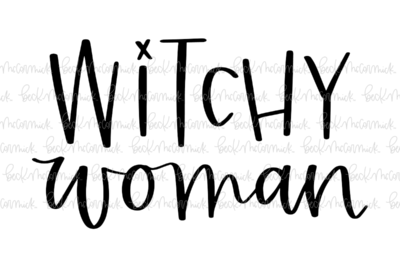 WiTCHY
woman